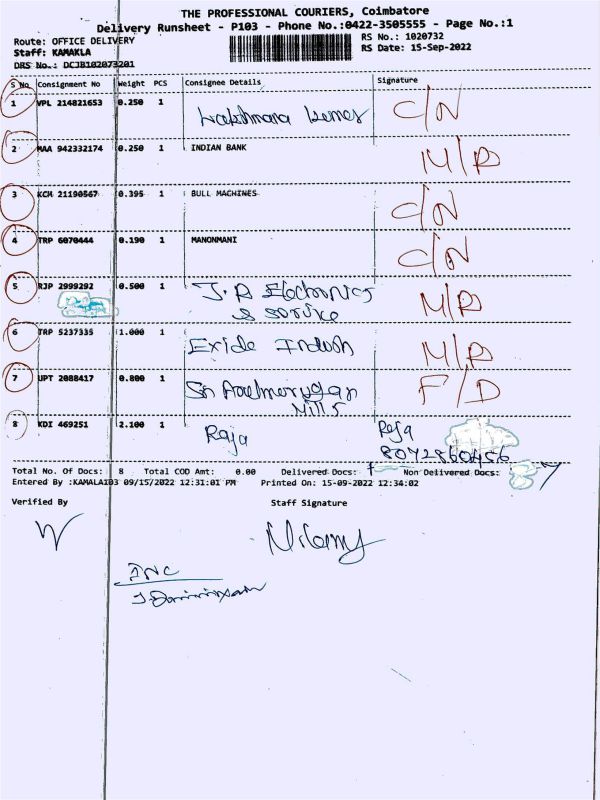 THE PROFESSIONAL COURIERS, Coimbatore
Delivery Runsheet - P103 - Phone No.:0422-3505555 - Page No.:1
Route: OFFICE DELIVERY RS No.: 1020732
Staff: KAMAKLA RS Date: 15-Sep-2022
DRS No.: DCJB102073201
S No. Consignment No Weight PCS Consignee Details Signature
1 VPL 214821653 0.250 1 C/N
2 MAA 942332174 0.250 1 INDIAN BANK M/R
3 KCM 21190567 0.395 1 BULL MACHINES C/N
4 TRP 6070444 0.190 1 MANONMANI C/N
5 RJP 2999292 0.500 1 J.R Electronics M/R
& service
6 TRP 5237335 1.000 1 Exide Indush M/R
7 UPT 2088417 0.800 1 Sri F/D
Mills
8 KDI 469251 2.100 1 Raja Raja
8072860456
Total No. Of Docs: 8 Total COD Amt: 0.00 Delivered Docs: 1 Non Delivered Docs: 7
Entered By :KAMALA103 09/15/2022 12:31:01 PM Printed On: 15-09-2022 12:34:02
Verified By Staff Signature